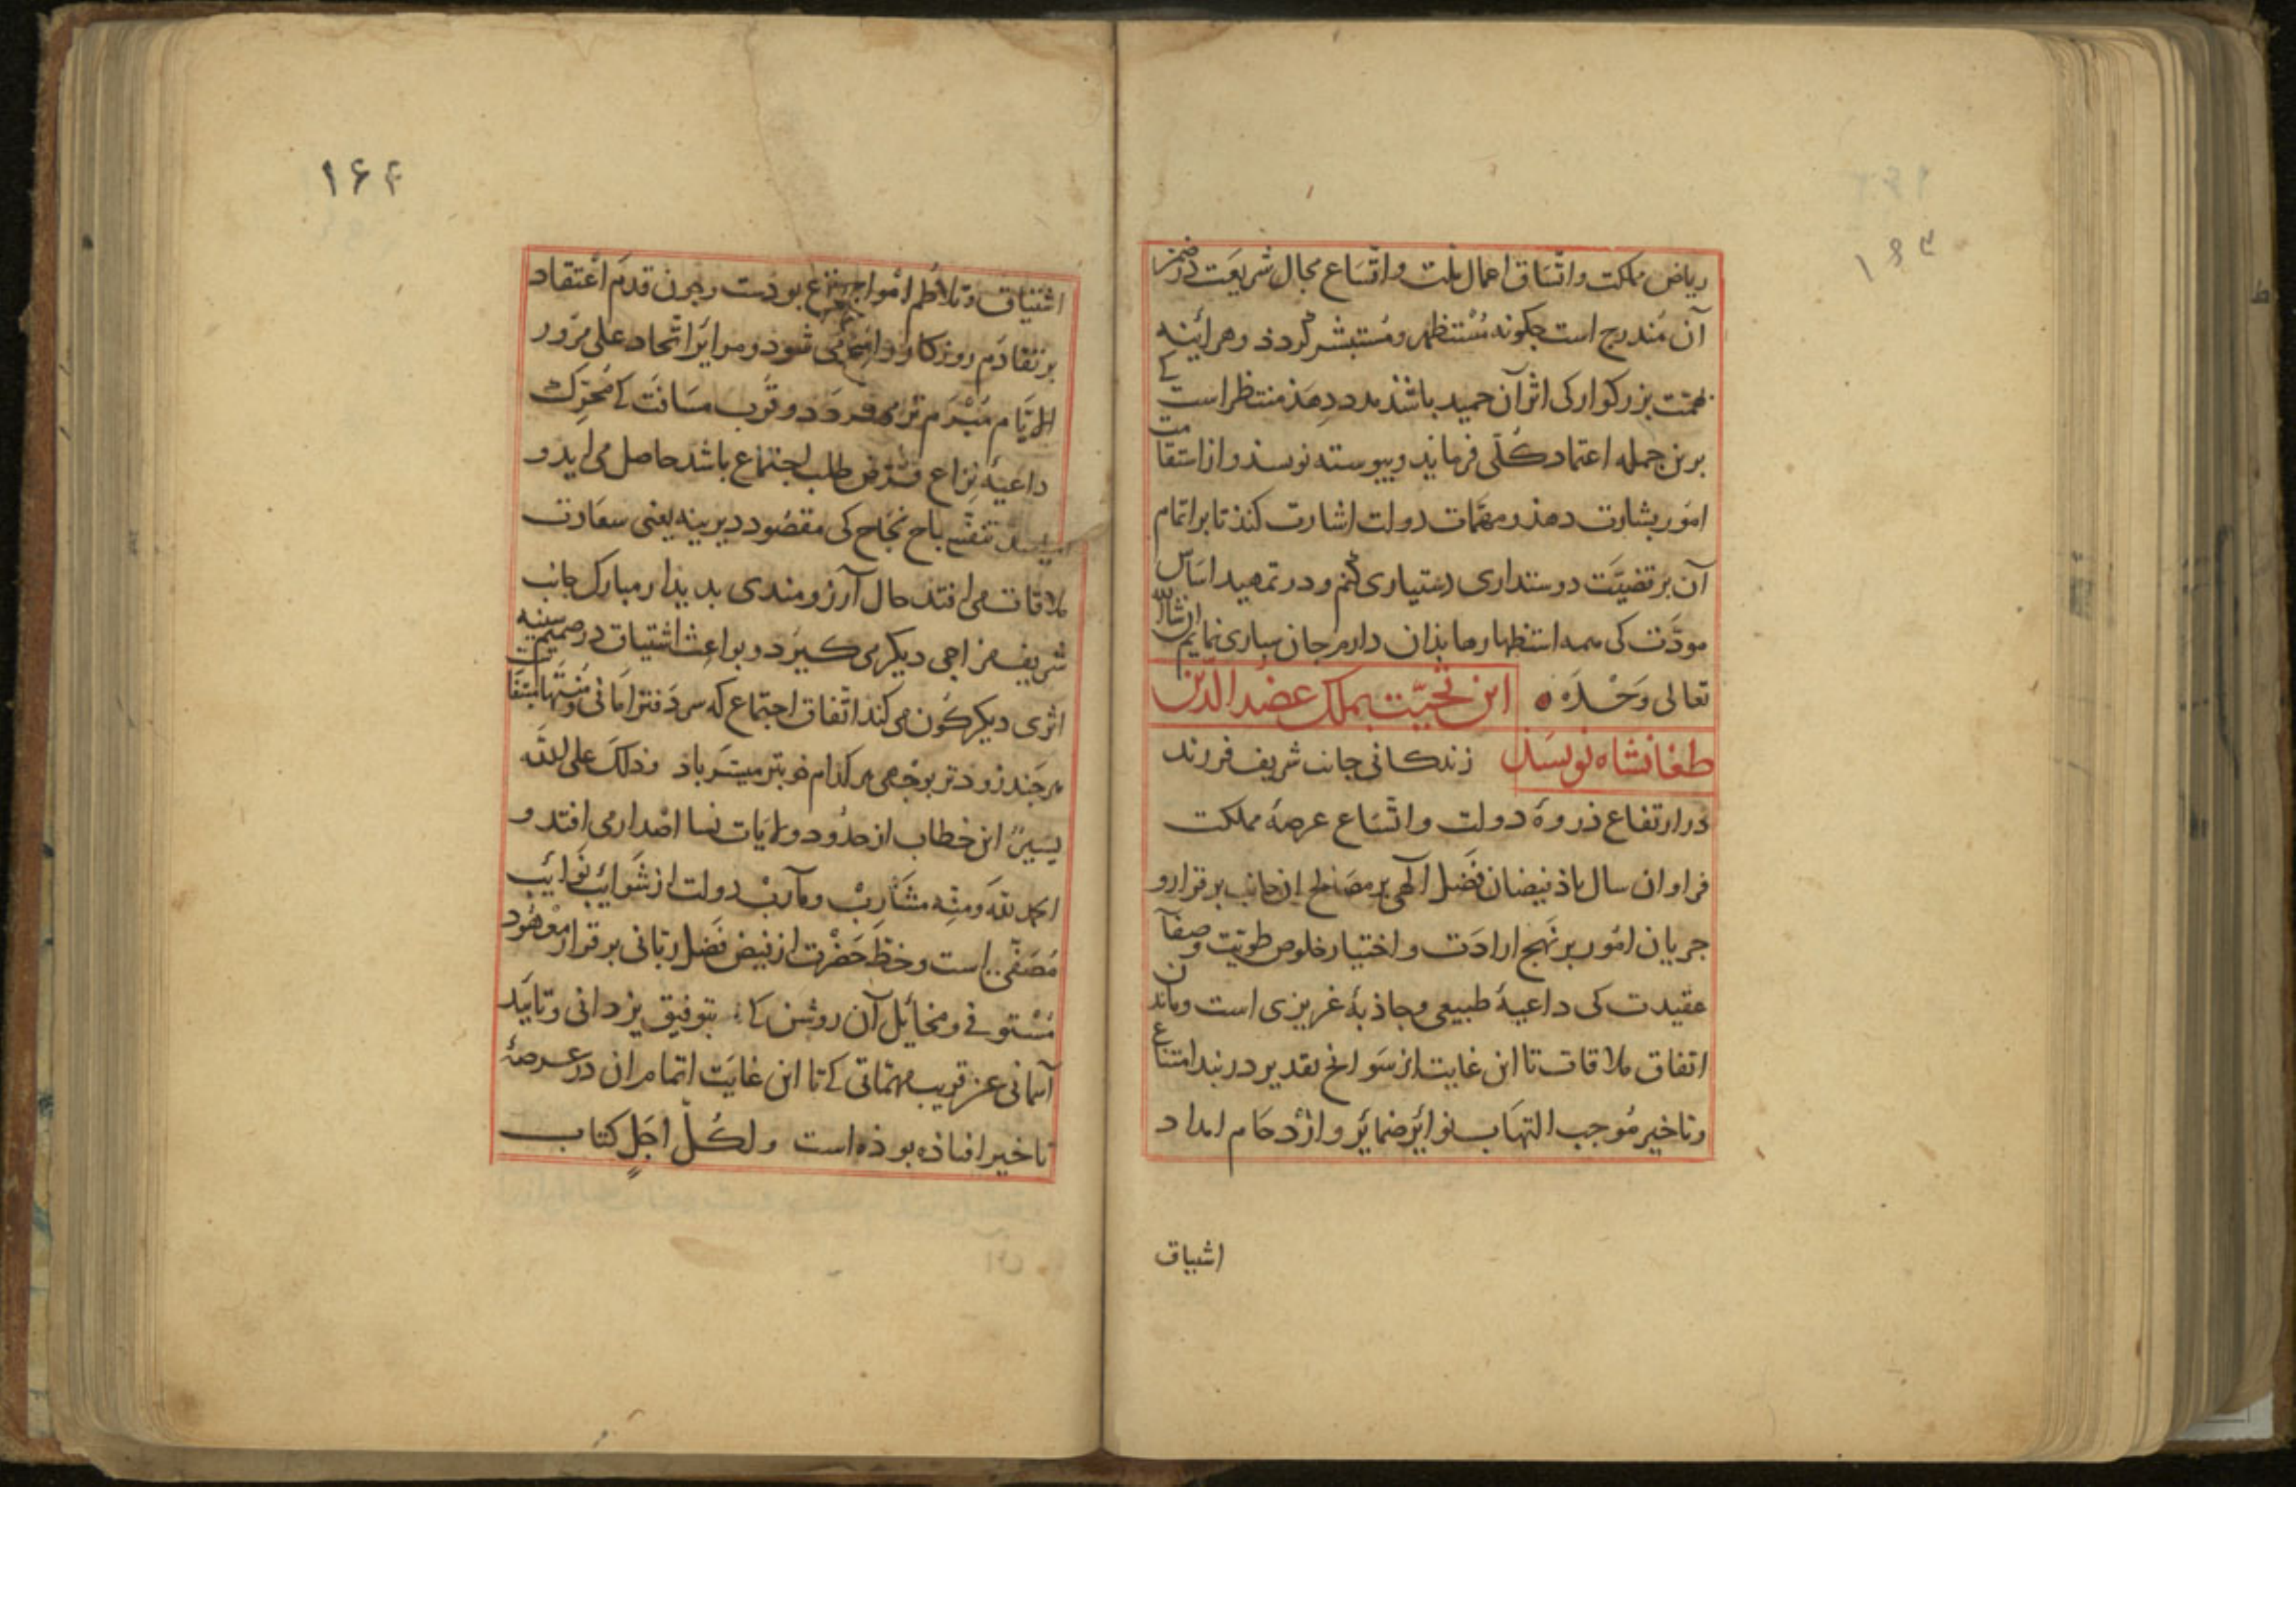 ۱۶۳
ریاض مملکت و اتساق اعمال ملت و اتساع مجال شریعت در ضمن
آن مندرج است جکونه مستظهر و مستبشر کردد و هرآئینه
همت بزرکوار کی اثر آن حمید باشذ مدد دهذ منتظر است کے
برین جمله اعتماد کلّی فرماید و بیوسته نویسذ و از استقامت
امور بشارت دهذ و مهمّات دولت اشارت کنذ تا بر اتمام
آن بر قضیّت دوستداری دستیاری کنم و در تمهید اساس
مودّت کی همه استظهارها بذان دارم جان سباری نمایم ان شاالله
تعالی وَحْدَهُ ه این تحیّت بملک عضد الدّین
طغانشاه نویسذ زندکانی جانب شریف فرزند
در ارتفاع ذروۀ دولت و اتّساع عرصۀ مملکت
فراوان سال باذ فیضان فضل الٓهی بر مصالح ان جانب بر قرار و
جریان امور بر نهج ارادَت و اختیار خلوص طویّت و صفآ
عقیدت کی داعیۀ طبیعی و جاذبۀ غریزی است و ماندن
اتفاق ملاقات تا این غایت از سوانح تقدیر در بند امتناع
و تاخیر مُوجب التهاب نوائر ضمائر و ازدحام امداد
اشتیاق
۱۶۴
اشتیاق و تلاطم امواج نزاع بوذست وجون قدم اعتقاد
بر تقادم روزکار می شود و مرائر اتّحاد علی مرّور
الایّام مُبْرَم تر می کردد و قرب مسافت کے محرّک
داعیۀ نزاع و طلب اجتماع باشد حاصل می اید و
باح نجاح کی مقصود دیرینه یعنی سعادت
ملاقات می افتد حال آرزومندی بدیدار مبارک جانب
شریف مزاجی دیکر می کیرد و بواعث اشتیاق در صمیم سینه
اثری دیکرکون می کند اتّفاق اجتماع که سر دفتر امانی و مُنْیَتها است
هر جند زودتر بوجهی هر کدام خوبتر میسّر باد و ذلک علی اللّه
یسیرٌ این خطاب از حدود ولایات نسا اصدار می افتد و
الحمد للّه ومنّه مشارب و مآرب دولت از شوائب نوائب
مصفّی است و حظّ حضرت از فیض فضل ربّانی بر قرار معهود
مُسْتوفے و مخائل آن روشن کے بتوفیق یزدانی و تایید
آسمانی عن قریب مهمّاتی کے تا این غایت اتمام ان در عرصۀ
تاخیر افتاذه بوذه است و لکُلّ اجَلٍ کتاب